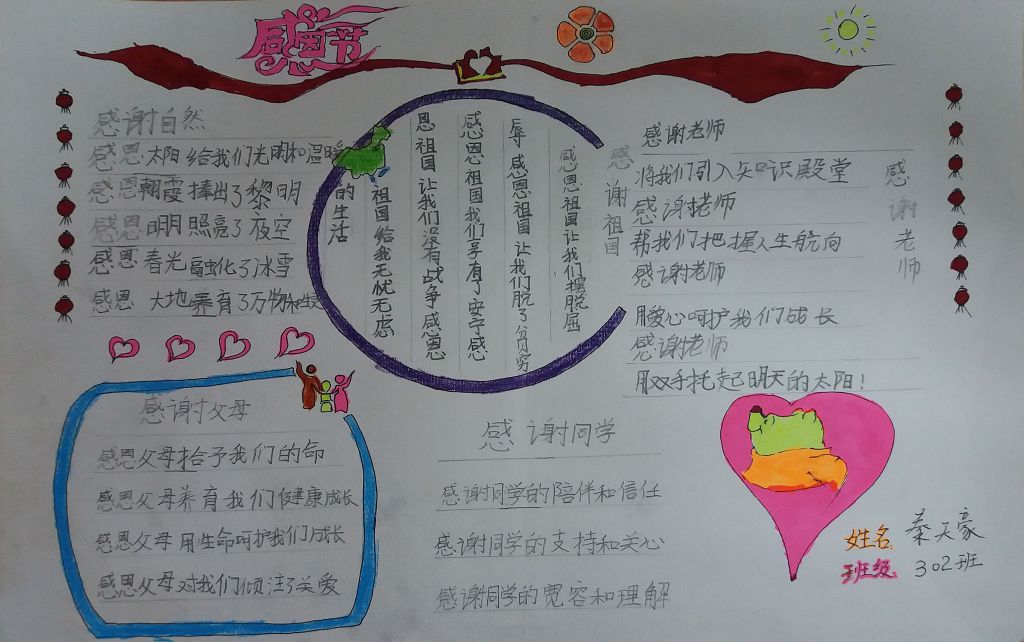 感恩节
感谢自然
感恩太阳给我们光明和温暖
感恩朝霞捧出了黎明
感恩明月照亮了夜空
感恩春光融化了冰雪
感恩大地养育了万物和
感谢祖国
感恩祖国让我们摆脱屈
辱感恩祖国让我们脱了贫穷
感恩祖国我们享有了安宁感
恩祖国让我们没有战争感恩
祖国给我无忧无虑
的生活
感谢老师
感谢老师
将我们引入知识殿堂
感谢老师
帮我们把握人生航向
感谢老师
用爱心呵护我们成长
感谢老师
用双手托起明天的太阳！
感谢父母
感恩父母给予我们的命
感恩父母养育我们健康成长
感恩父母用生命呵护我们成长
感恩父母对我们倾注了关爱
感谢同学
感谢同学的陪伴和信任
感谢同学的支持和关心
感谢同学的宽容和理解
姓名：秦天豪
班级 302班